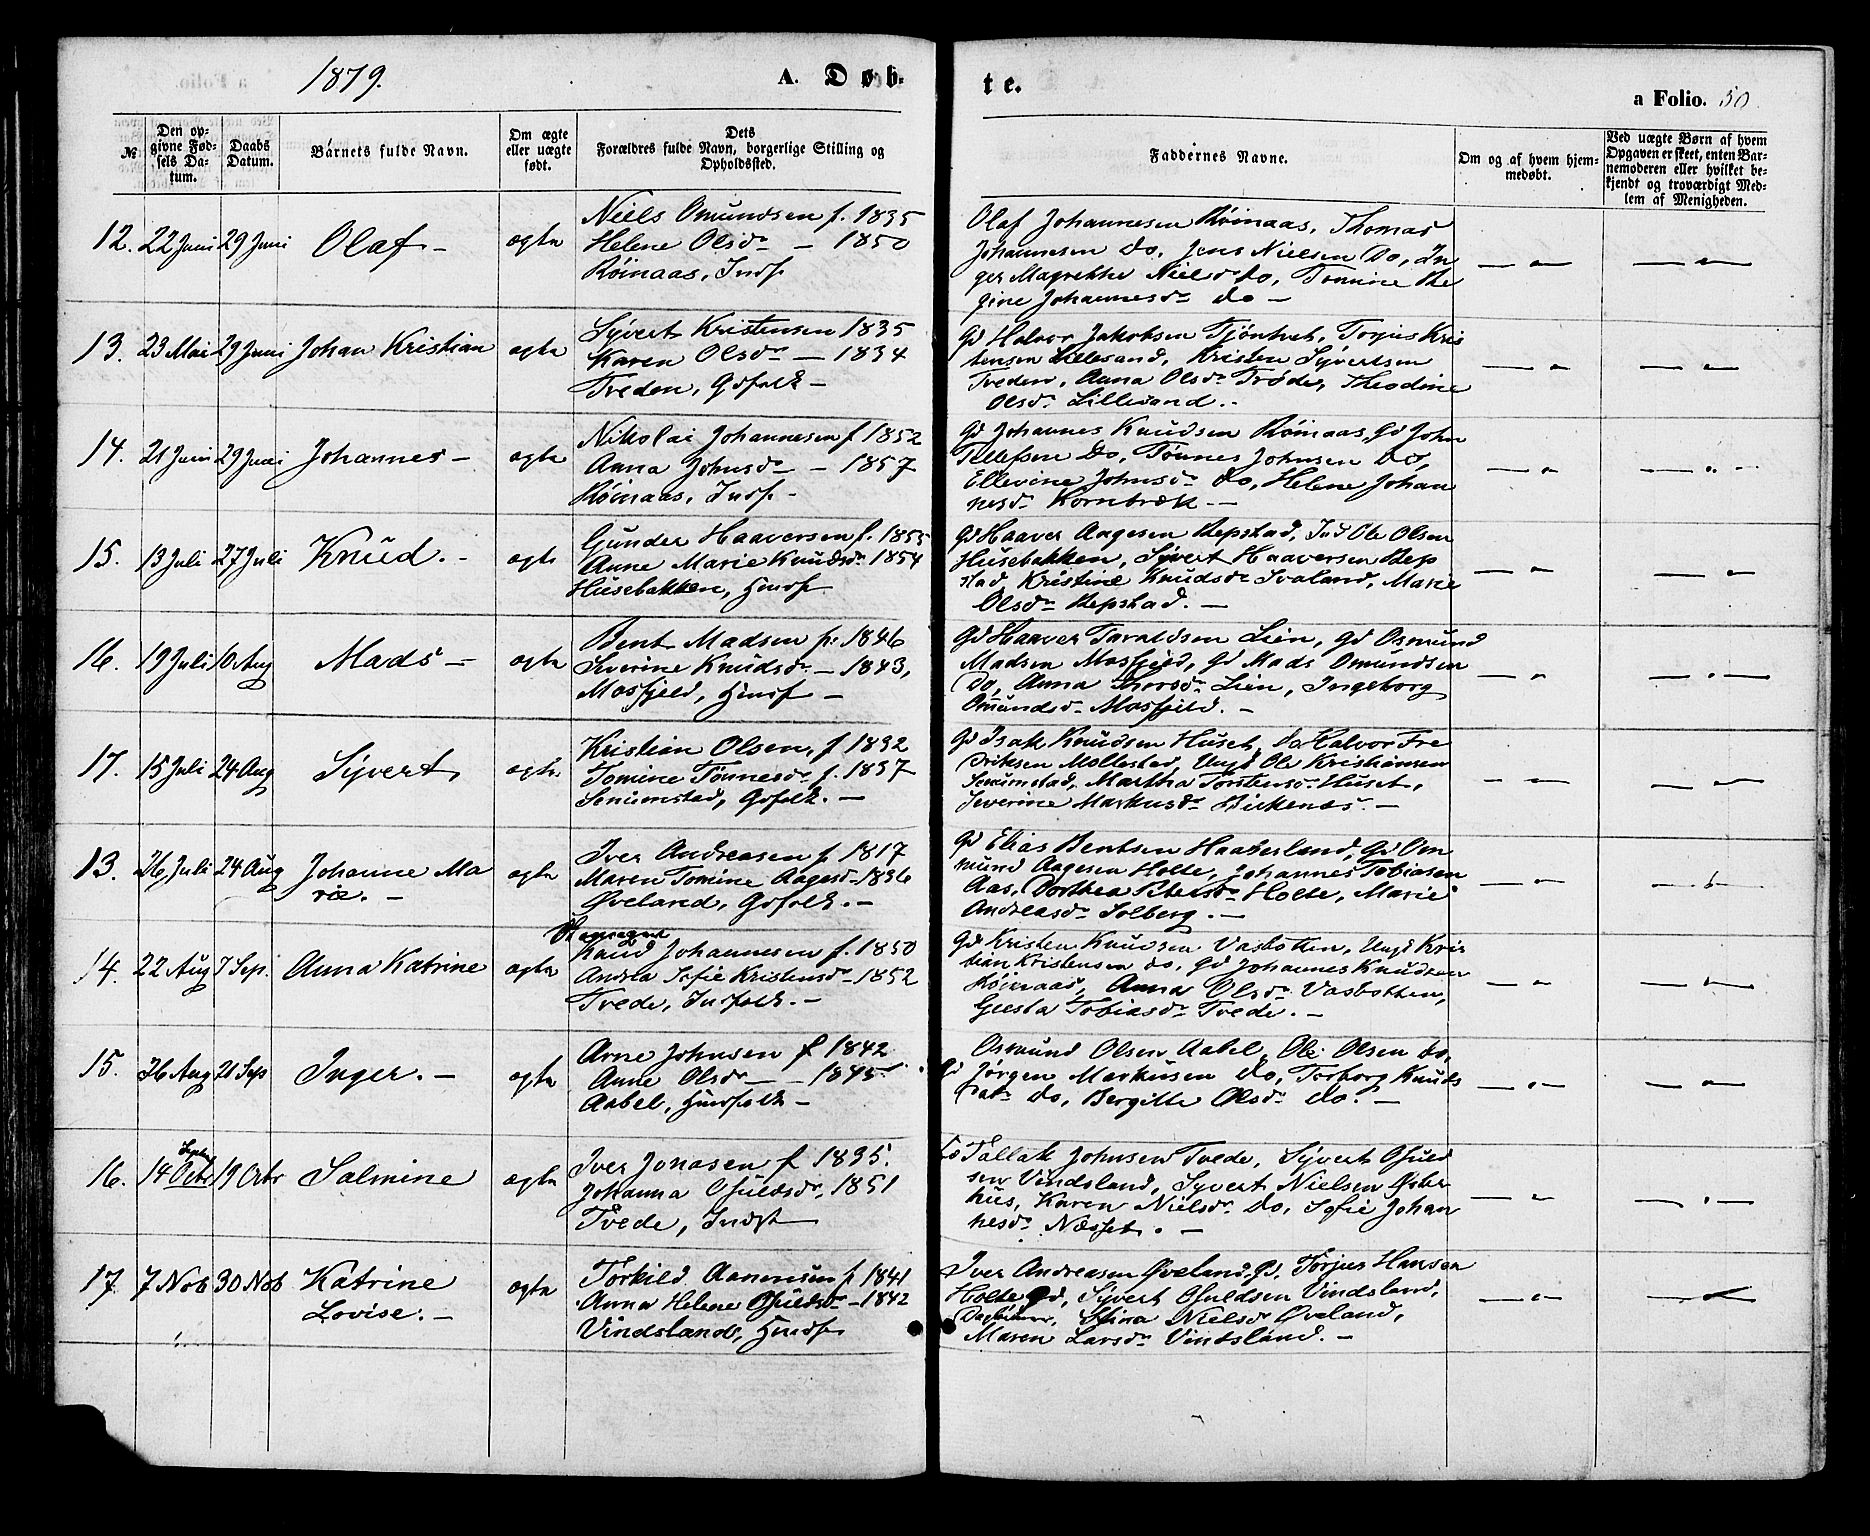 1879.
A. Døb-
te.
a Folio. 50.
№
Den op-
givne Fød-
sels Da-
tum.
Daabs
Datum.
Barnets fulde Navn.
Om ægte
eller uægte
født.
Dets
Forældres fulde Navn, borgerlige Stilling og
Opholdssted.
Faddernes Navne.
Om og af hvem hjem-
medøbt.
Ved uægte Børn af hvem
Opgaven er skeet, enten Bar-
nemoderen eller hvilket be-
kjendt og troværdigt Med-
lem af Menigheden.
12. 22 Juni 29 Juni Olaf. – ægte
Niels Omundsen f. 1835
Helene Olsdr – 1850
Røinaas, Indf
Olaf Johannesen Røinaas, Thomas
Johannesen do, Jens Nielsen do, In
ger Nielsdr do, Tomine Re
gine Johannesdr do –
13. 23 Mai 29 Juni Johan Kristian ægte
Syvert Kristensen 1835
Karen Olsdr – 1834
Treden, Gdfolk –
Gd Halvor Jakobsen Tjøntvet, Torjus Kris
tensen Lillesand, Kristen Syvertsen
Treden, Anna Olsdr Trøde, Theodine
Olsdr Lillesand. –
14. 21 Juni 29 Juni Johannes – ægte
Nikolai Johannesen f 1852
Anna Johnsdr – 1857
Røinaas, Indf –
Gd Johannes Knudsen Røinaas, Gd John
Tellefsen do, Tønnes Johnsen do,
Ellevine Johnsdr do, Helene Johan
nesdr Kornbræk –
15. 13 Juli 27 Juli Knud. – ægte
Gunder Haaversen f. 1855
Anne Marie Knudsdr 1854
Husebakken, Hmdf
Gd Haaver Aagesen Repstad, Ind Ole Olsen
Husebakken, Syvert Haaversen Rep
stad, Kristine Knudsdr Svaland, Marie
Olsdr Repstad. –
16. 19 Juli 10 Aug Mads – ægte
Bent Madsen f. 1846
Severine Knudsdr – 1843,
Mosfjeld, Hmdf –
Gd Haaver Taraldsen Lien, Gd Osmund
Madsen Mosfjeld, Gd Mads Omundsen
do, Anna Lien, Ingeborg
Omundsdr Mosfjeld. –
17. 15 Juli 24 Aug Syvert ægte
Kristian Olsen, f 1832
Tomine Tønnesdr f. 1837
Senumstad, Gdfolk. –
Gd Isak Knudsen Huset, do Halvor Fre
driksen Mollestad, Ungk Ole Kristiansen
Senumstad, Martha Torstensdr Huset,
Severine Markusdr Birkenes. –
13. 26 Juli 24 Aug Johanne Ma
rie. – ægte
Iver Andreasen f. 1817
Maren Tomine Aagesdr 1836
Øveland, Gdfolk. –
Gd Elias Bentsen Haaberland, Gd Om
mund Aagesen Holte, Johannes Tobiasen
Aas, Dorthea Petersdr Holte, Marie
Andreasdr Solberg. –
14. 22 Aug 7 Sep. Anna Katrine ægte
Knud Johannesen f. 1850
Andrea Sofie Kristensdr – 1852
Tvede, Indfolk. –
Gd Kristen Knudsen Vasbotten, Ungk Kris
tian Kristensen do, Gd Johannes Knudsen
Røinaas, Anna Olsdr Vasbotten,
Gusta Tobiasdr Tvede. –
15. 26 Aug 21 Sep Inger. – ægte
Arne Johnsen f 1842
Anne Olsdr – 1845
Aabel, Hmdfolk –
Osmund Olsen Aabel, Ole Olsen do,
Gd Jørgen Markusen do, Torborg Knuds
datr do, Bergitte Olsdr do. –
16. 14 Septbr Octr 19 Octbr Salmine ægte
Iver Jonasen f 1835.
Johanna Osuldsdr, 1851
Tvede, Indst
Tallak Johnsen Tvede, Syvert Osuld
sen Vindsland, Syvert Nielsen Øster
hus, Karen Nielsdr do, Sofie Johan
nesdr Næsset. –
17. 7 Nob 30 Nob Katrine
Lovise. – ægte
Torkild Aanonsen f 1841
Anna Helene Osuldsdr – 1842
Vindsland, Hmdf
Iver Andreasen Øveland, Gd, Torjus Hansen
Holte Gd, Syvert Osuldsen Vindsland,
Stina Nielsdr Øveland,
Maren Larsdr Vindsland. –